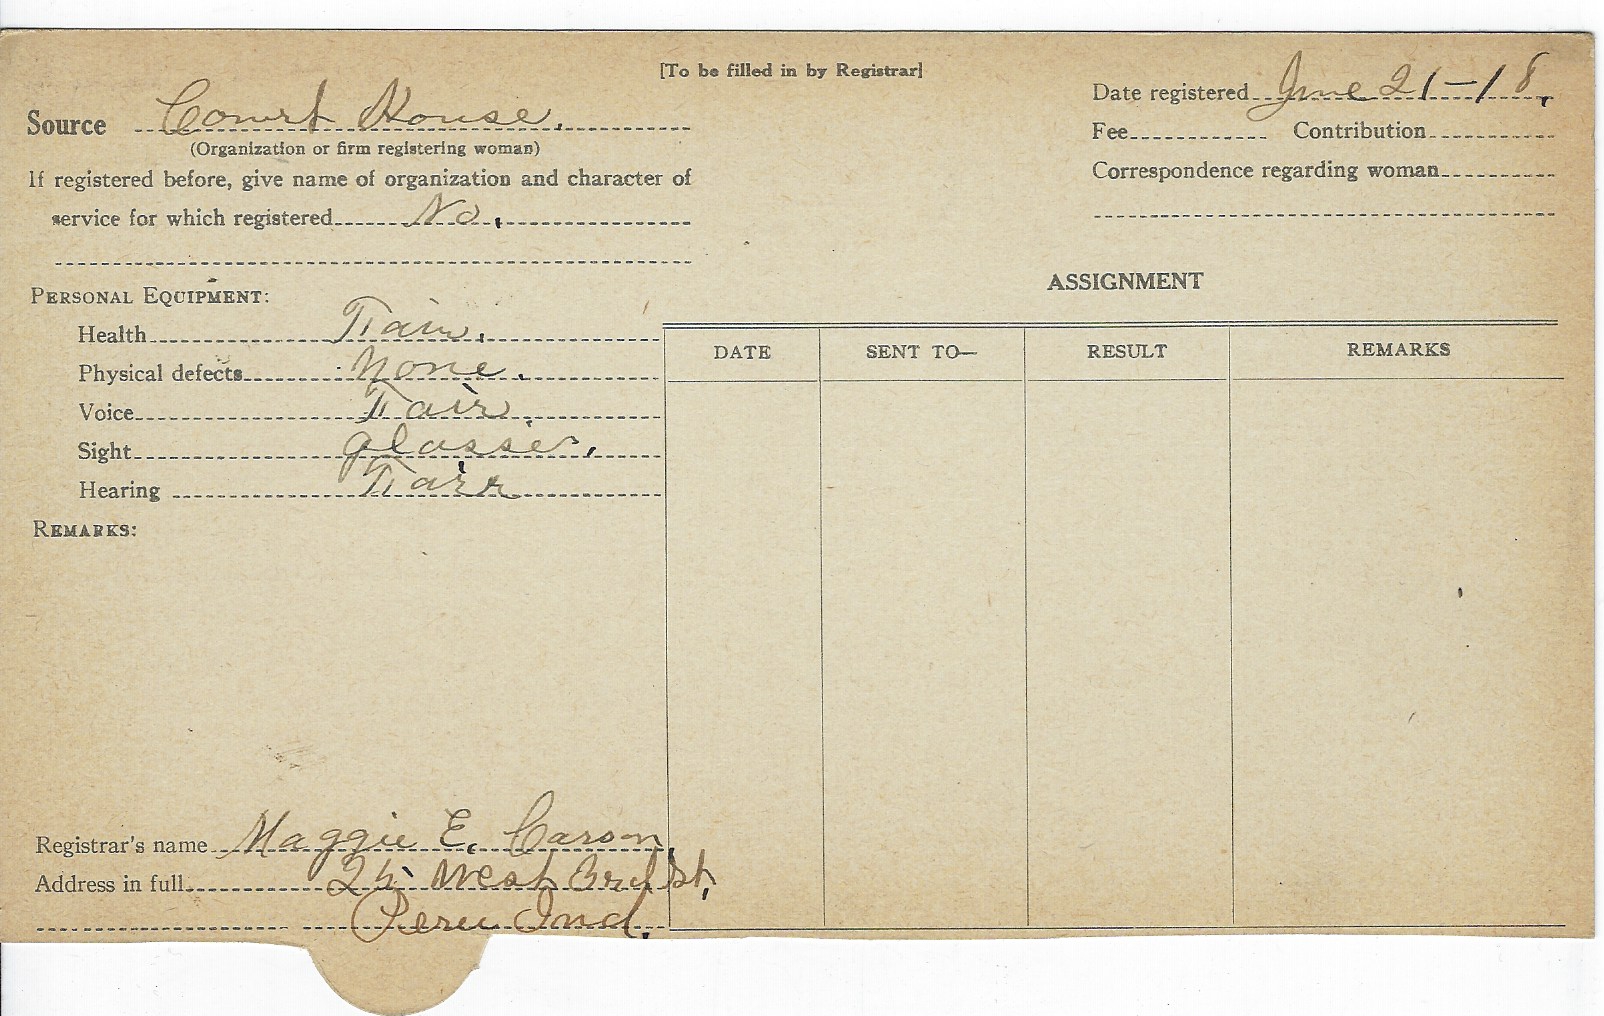 [To be filled in by Registrar]
Source Court House.
(Organization or firm registering woman)
If registered before, give name of organization and character of
service for which registered No.
Date registered June 21-18.
Fee Contribution
Correspondence regarding woman
PERSONAL EQUIPMENT:
Health Fair.
Physical defects None.
Voice Fair
Sight glasses.
Hearing Fair
REMARKS:
ASSIGNMENT
DATE SENT TO— RESULT REMARKS
Registrar's name Maggie E. Carson
Address in full 25 West 3rd St,
Peru Ind.